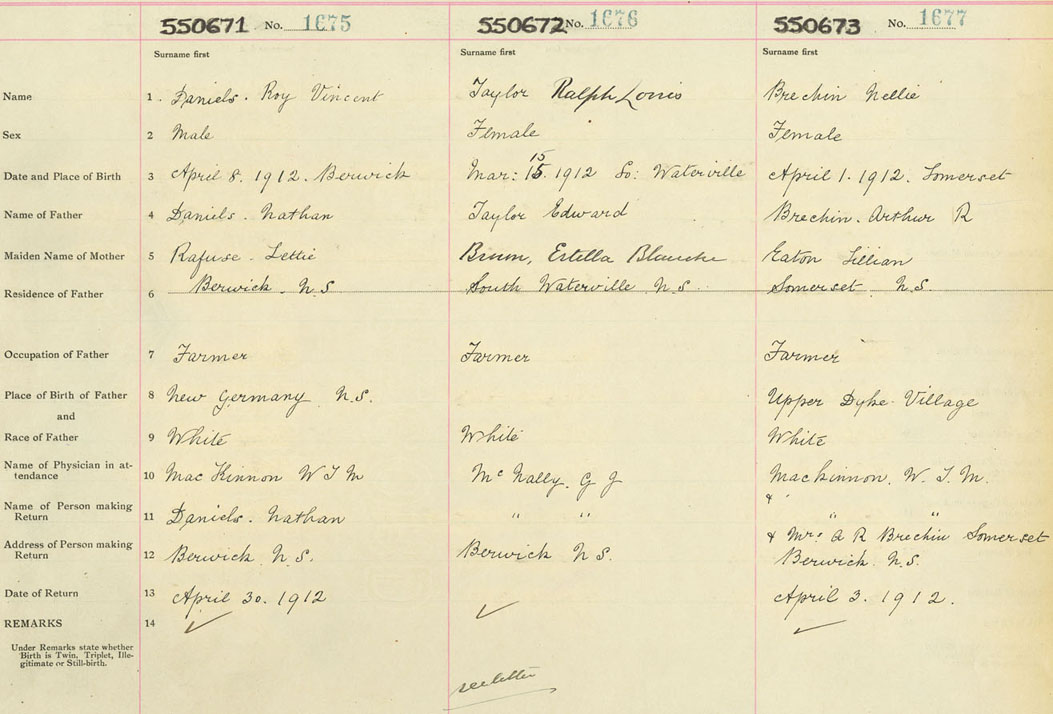 550671 No. 1675 550672 No. 1676 550673 No. 1677
Surname first Surname first Surname first
Name 1. Daniels. Roy Vincent Taylor Ralph Louis Brechin Nellie
Sex 2 Male Female Female
Date and Place of Birth 3 April 8. 1912. Berwick Mar: 15 15. 1912 So: Waterville April 1. 1912. Somerset
Name of Father 4 Daniels. Nathan Taylor Edward Brechin. Arthur R
Maiden Name of Mother 5 Rafuse - Lettie Estella Blanche Eaton Lillian
Residence of Father 6 Berwick. N.S South Waterville N.S. Somerset N.S.
Occupation of Father 7 Farmer Farmer Farmer
Place of Birth of Father 8 New Germany N.S. Upper Dyke Village
and
Race of Father 9 White White White
Name of Physician in at-
tendance 10 MacKinnon W J M McNally. G J MacKinnon. W. J. M.
&
Name of Person making
Return 11 Daniels. Nathan " " " "
& Mrs A R Brechin Somerset
Address of Person making
Return 12 Berwick N.S. Berwick N.S. Berwick. N.S.
Date of Return 13 April 30. 1912 April 3. 1912.
REMARKS 14
Under Remarks state whether
Birth is Twin, Triplet, Ille-
gitimate or Still-birth.
see letter